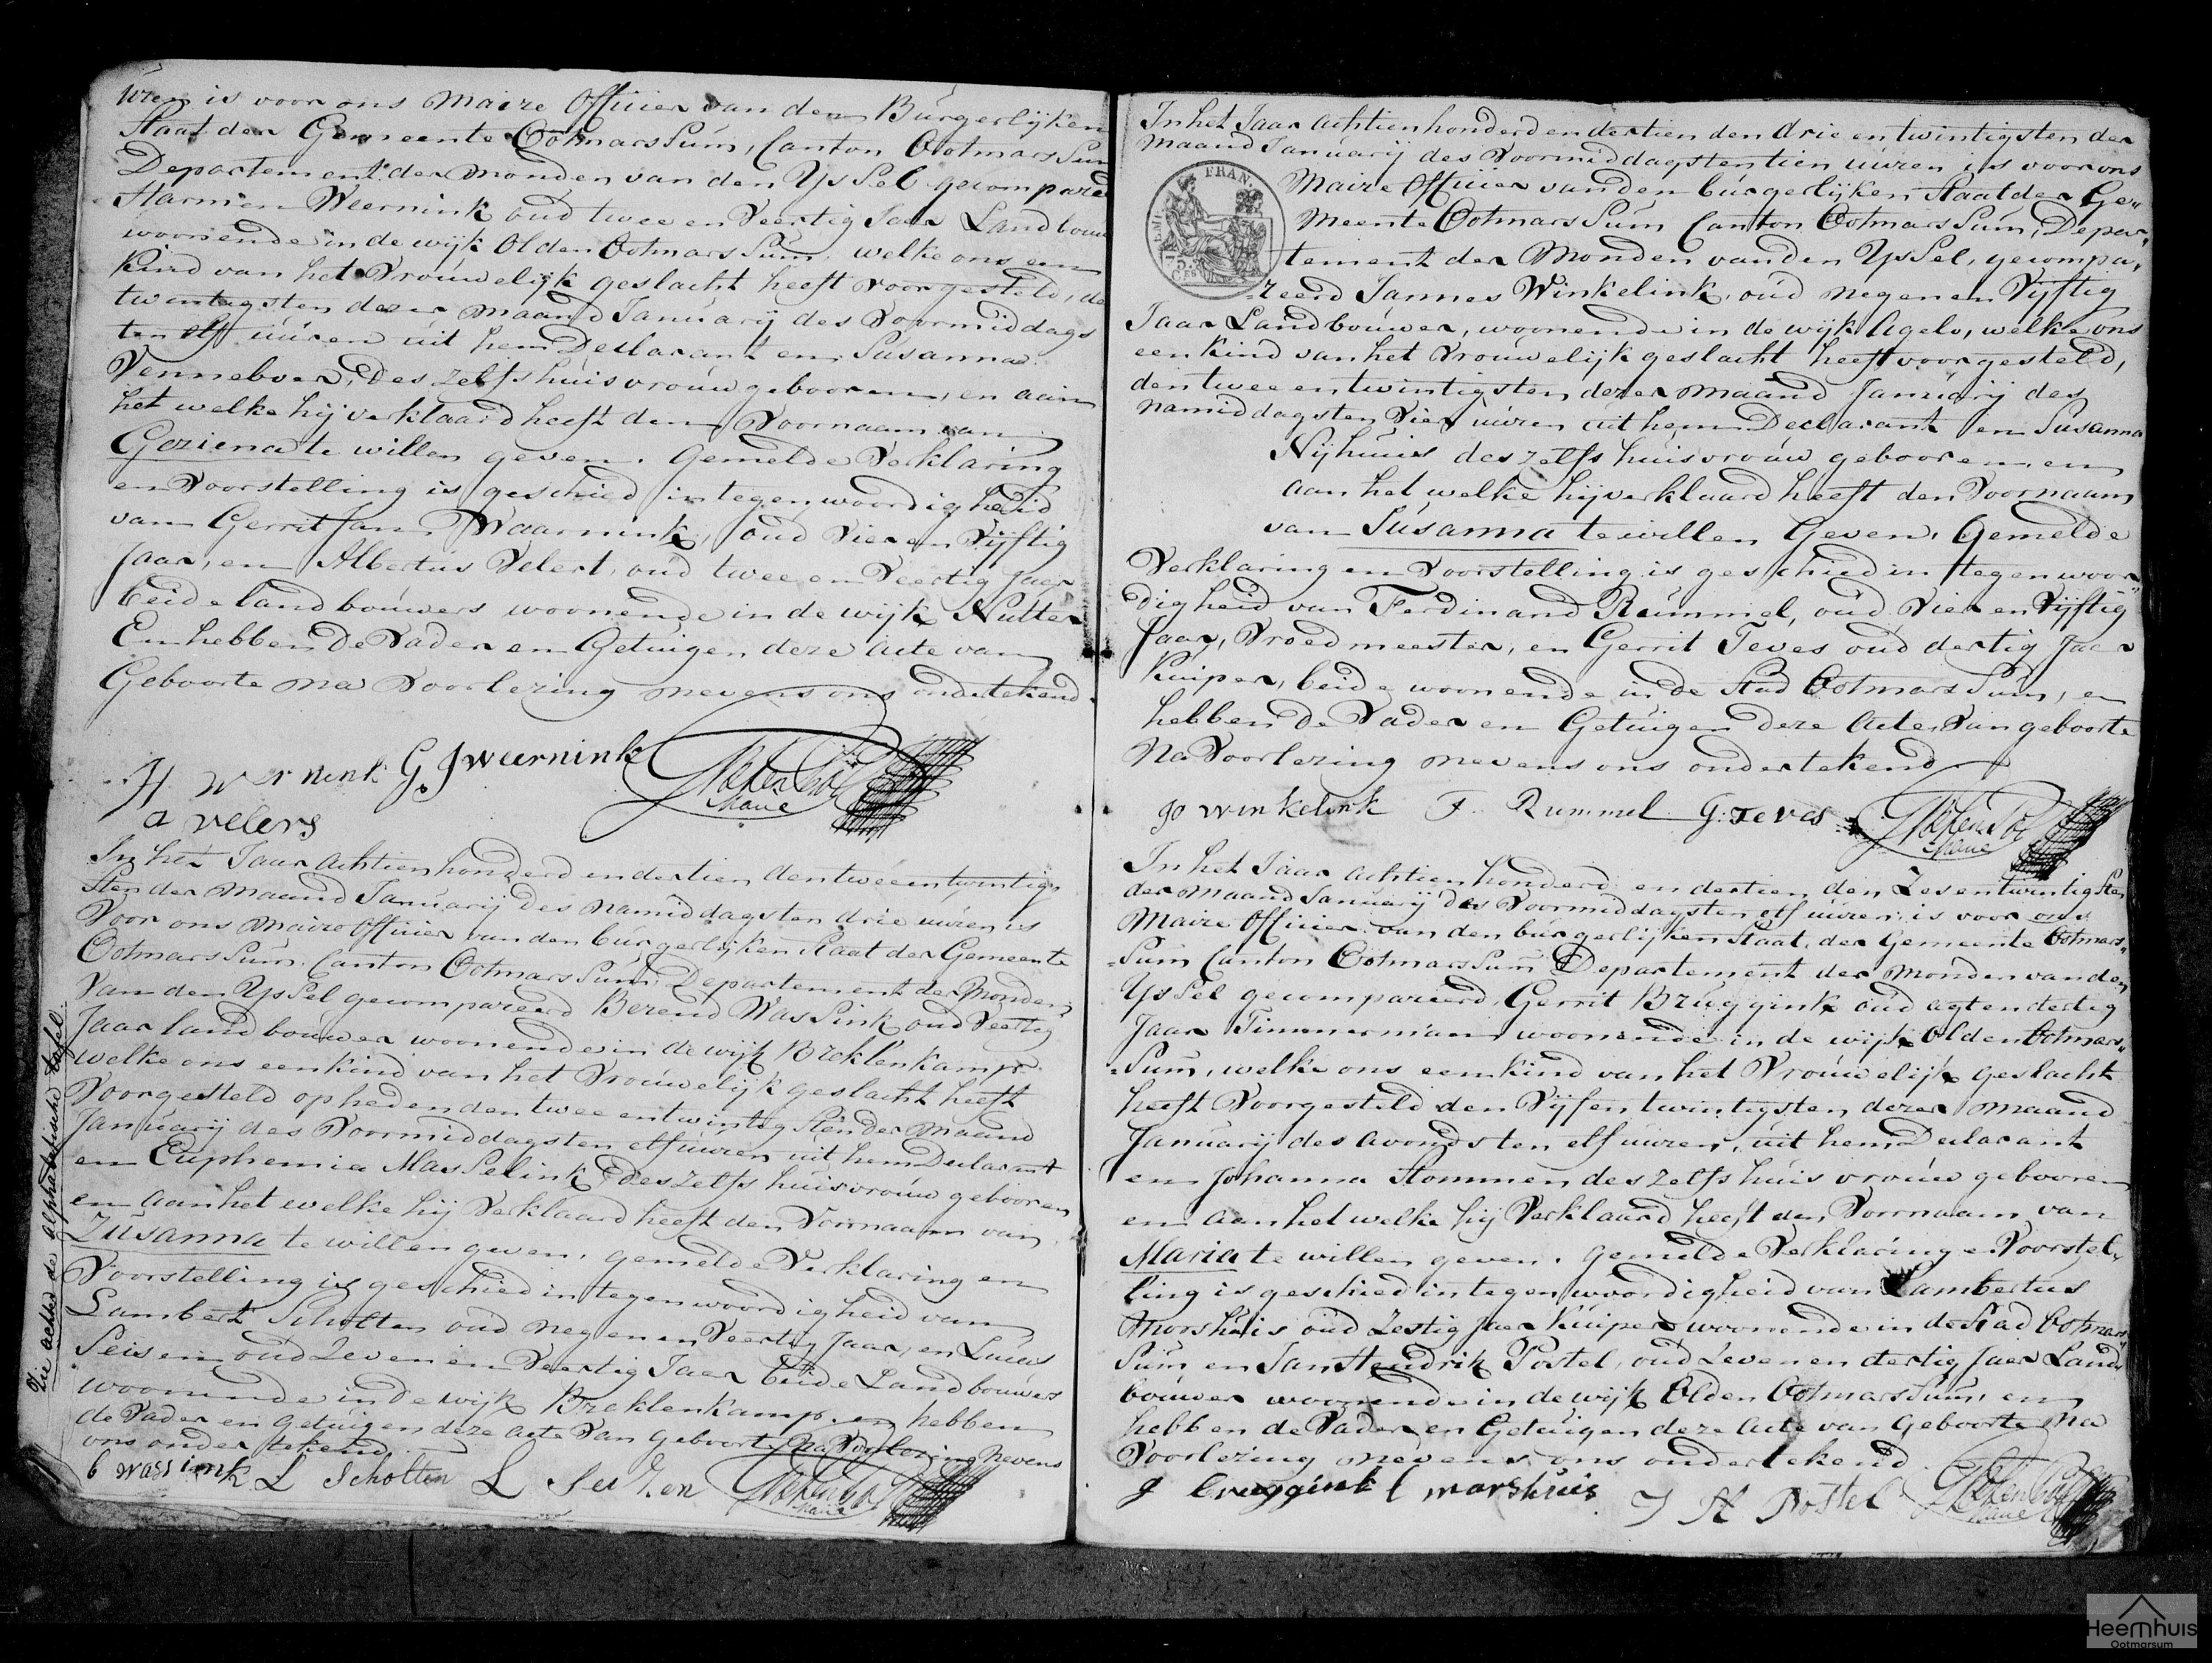 uren is voor ons Maire Officier van den Burgerlijken
Staat der Gemeente Ootmarssum, Canton Ootmarssum
Departement der Monden van den Yssel gecompareerd
Harmen Weernink oud twee en Veertig Jaar Landbouw
woonende in de wijk Olden Ootmarssum, welke ons een
Kind van het Vrouwelijk geslacht heeft voorgesteld, de
twintigsten dezer maand Januarij des Voormiddags
ten elf uuren uit hem Declarant en Susanna
Venneboer, des zelfs huisvrouw gebooren, en aan
het welke hij verklaard heeft den Voornaam van
Geziena te willen geven. Gemelde Verklaring
en Voorstelling is geschied in tegenwoordigheid
van Gerrit Jan Waarnink, oud Vier en Vijftig
Jaar, en Albertus Velert, oud twee en Veertig Jaar
beide landbouwers woonende in de wijk Nutter
En hebben De Vader en Getuigen deze acte van
Geboorte na Voorlezing nevens ons ondertekend.
H wernink G J weernink
Maire
a velers
In het Jaar Achtienhonderd en dertien den twee en twintig
sten der Maand Januarij des namiddags ten drie uuren is
Voor ons Maire Officier van den burgerlijken Staat der Gemeente
Ootmarssum, Canton Ootmarssum, Departement der Monden
Van den Yssel gecompareerd Berend Wassink oud Veertig
Jaar landbouwer woonende in de wijk Breklenkamp
welke ons een kind van het Vrouwelijk geslacht heeft
Voorgesteld op heden den twee en twintigsten der Maand
Januarij des Voormiddags ten elf uuren uit hem Declarant
en Euphemia Masselink, des zelfs huisvrouw gebooren
en aan het welke hij Verklaard heeft den Voornaam van
Zusanna te willen geven. gemelde Verklaring en
Voorstelling is geschied in tegenwoordigheid van
Lambert Scholten oud negen en Veertig Jaar, en Lucas
Seisen oud Zeven en Veertig Jaar beide Landbouwers
woonende in de wijk Breklenkamp. en hebben
de Vader en getuigen deze acte Van Geboorte na Voorlezing nevens
ons ondertekend.
b wassink L Scholten L
Maire
Zie achter de alphabetische tafel
In het Jaar Achtienhonderd en dertien den drie en twintigsten der
Maand Januarij des Voormiddags ten tien uuren is voor ons
FRAN.
Maire Officier van den burgerlijken Staat der Ge„
Meente Ootmarssum Canton Ootmarssum, Depar„
tement der Monden van den Yssel, gecompa„
„reerd Jannes Winkelink, oud negen en Vijftig
Jaar Landbouwer, woonende in de wijk Agelo, welke ons
een kind van het Vrouwelijk geslacht heeft voorgesteld,
den twee en twintigsten dezer Maand Januarij des
namiddags ten Vier uuren uit hem Declarant en Susanna
Nijhuis des zelfs huisvrouw gebooren en
aan het welke hij verklaard heeft den Voornaam
van Susanna te willen Geven. Gemelde
Verklaring en Voorstelling is geschied in tegenwoor„
digheid van Ferdinand Rummel, oud Vier en Vijftig
Jaar, Vroedmeester, en Gerrit Teves oud dertig Jaar
Kuiper, beide woonende in de Stad Ootmarssum, en
hebben De Vader en Getuigen Deze Acte Van geboorte
Na Voorlezing nevens ons ondertekend
winkelink F. Rummel G: Teves
Maire
In het Jaar Achtienhonderd en dertien den Zes en twintigsten
der Maand Januarij des Voormiddags ten elf uuren is voor ons
Maire Officier van den burgerlijken Staat, der Gemeente Ootmars„
„sum Canton Ootmarssum Departement der Monden van den
Yssel gecompareerd, Gerrit Bruggink oud agt en dertig
Jaar Timmerman woonende in de wijk Olden Ootmars„
„sum, welke ons een kind van het Vrouwelijk geslacht
heeft Voorgesteld den Vijf en twintigsten dezer maand
Januarij des avonds ten elf uuren, uit hem Declarant
en Johanna Stommen des zelfs huis vrouw gebooren
en aan het welke hij Verklaard heeft den Voornaam van
Maria te willen geven. gemelde Verklaring en Voorstel„
ling is geschied in tegenwoordigheid van Lambertus
Morshuis oud Zestig Jaar Kuiper woonende in de Stad Ootmars„
sum en Jan Hendrik Postel, oud Zeven en dertig Jaar Land„
bouwer woonende in de wijk Olden Ootmarssum, en
hebben de Vader en Getuigen deze acte van Geboorte Na
Voorlezing nevens ons ondertekend
g bruggink l morshuis J H Postel
Maire
Heemhuis
Ootmarsum